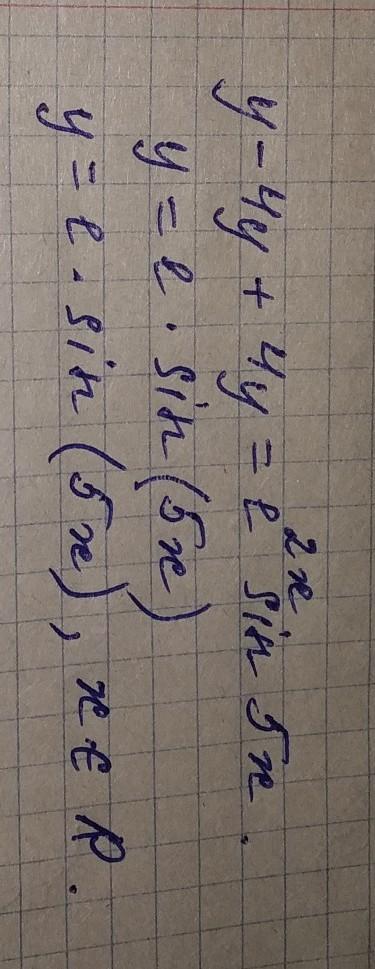 y - 4y + 4y = e^{2x} sin 5x.
y = e · sin(5x)
y = e · sin(5x), x ∈ R.